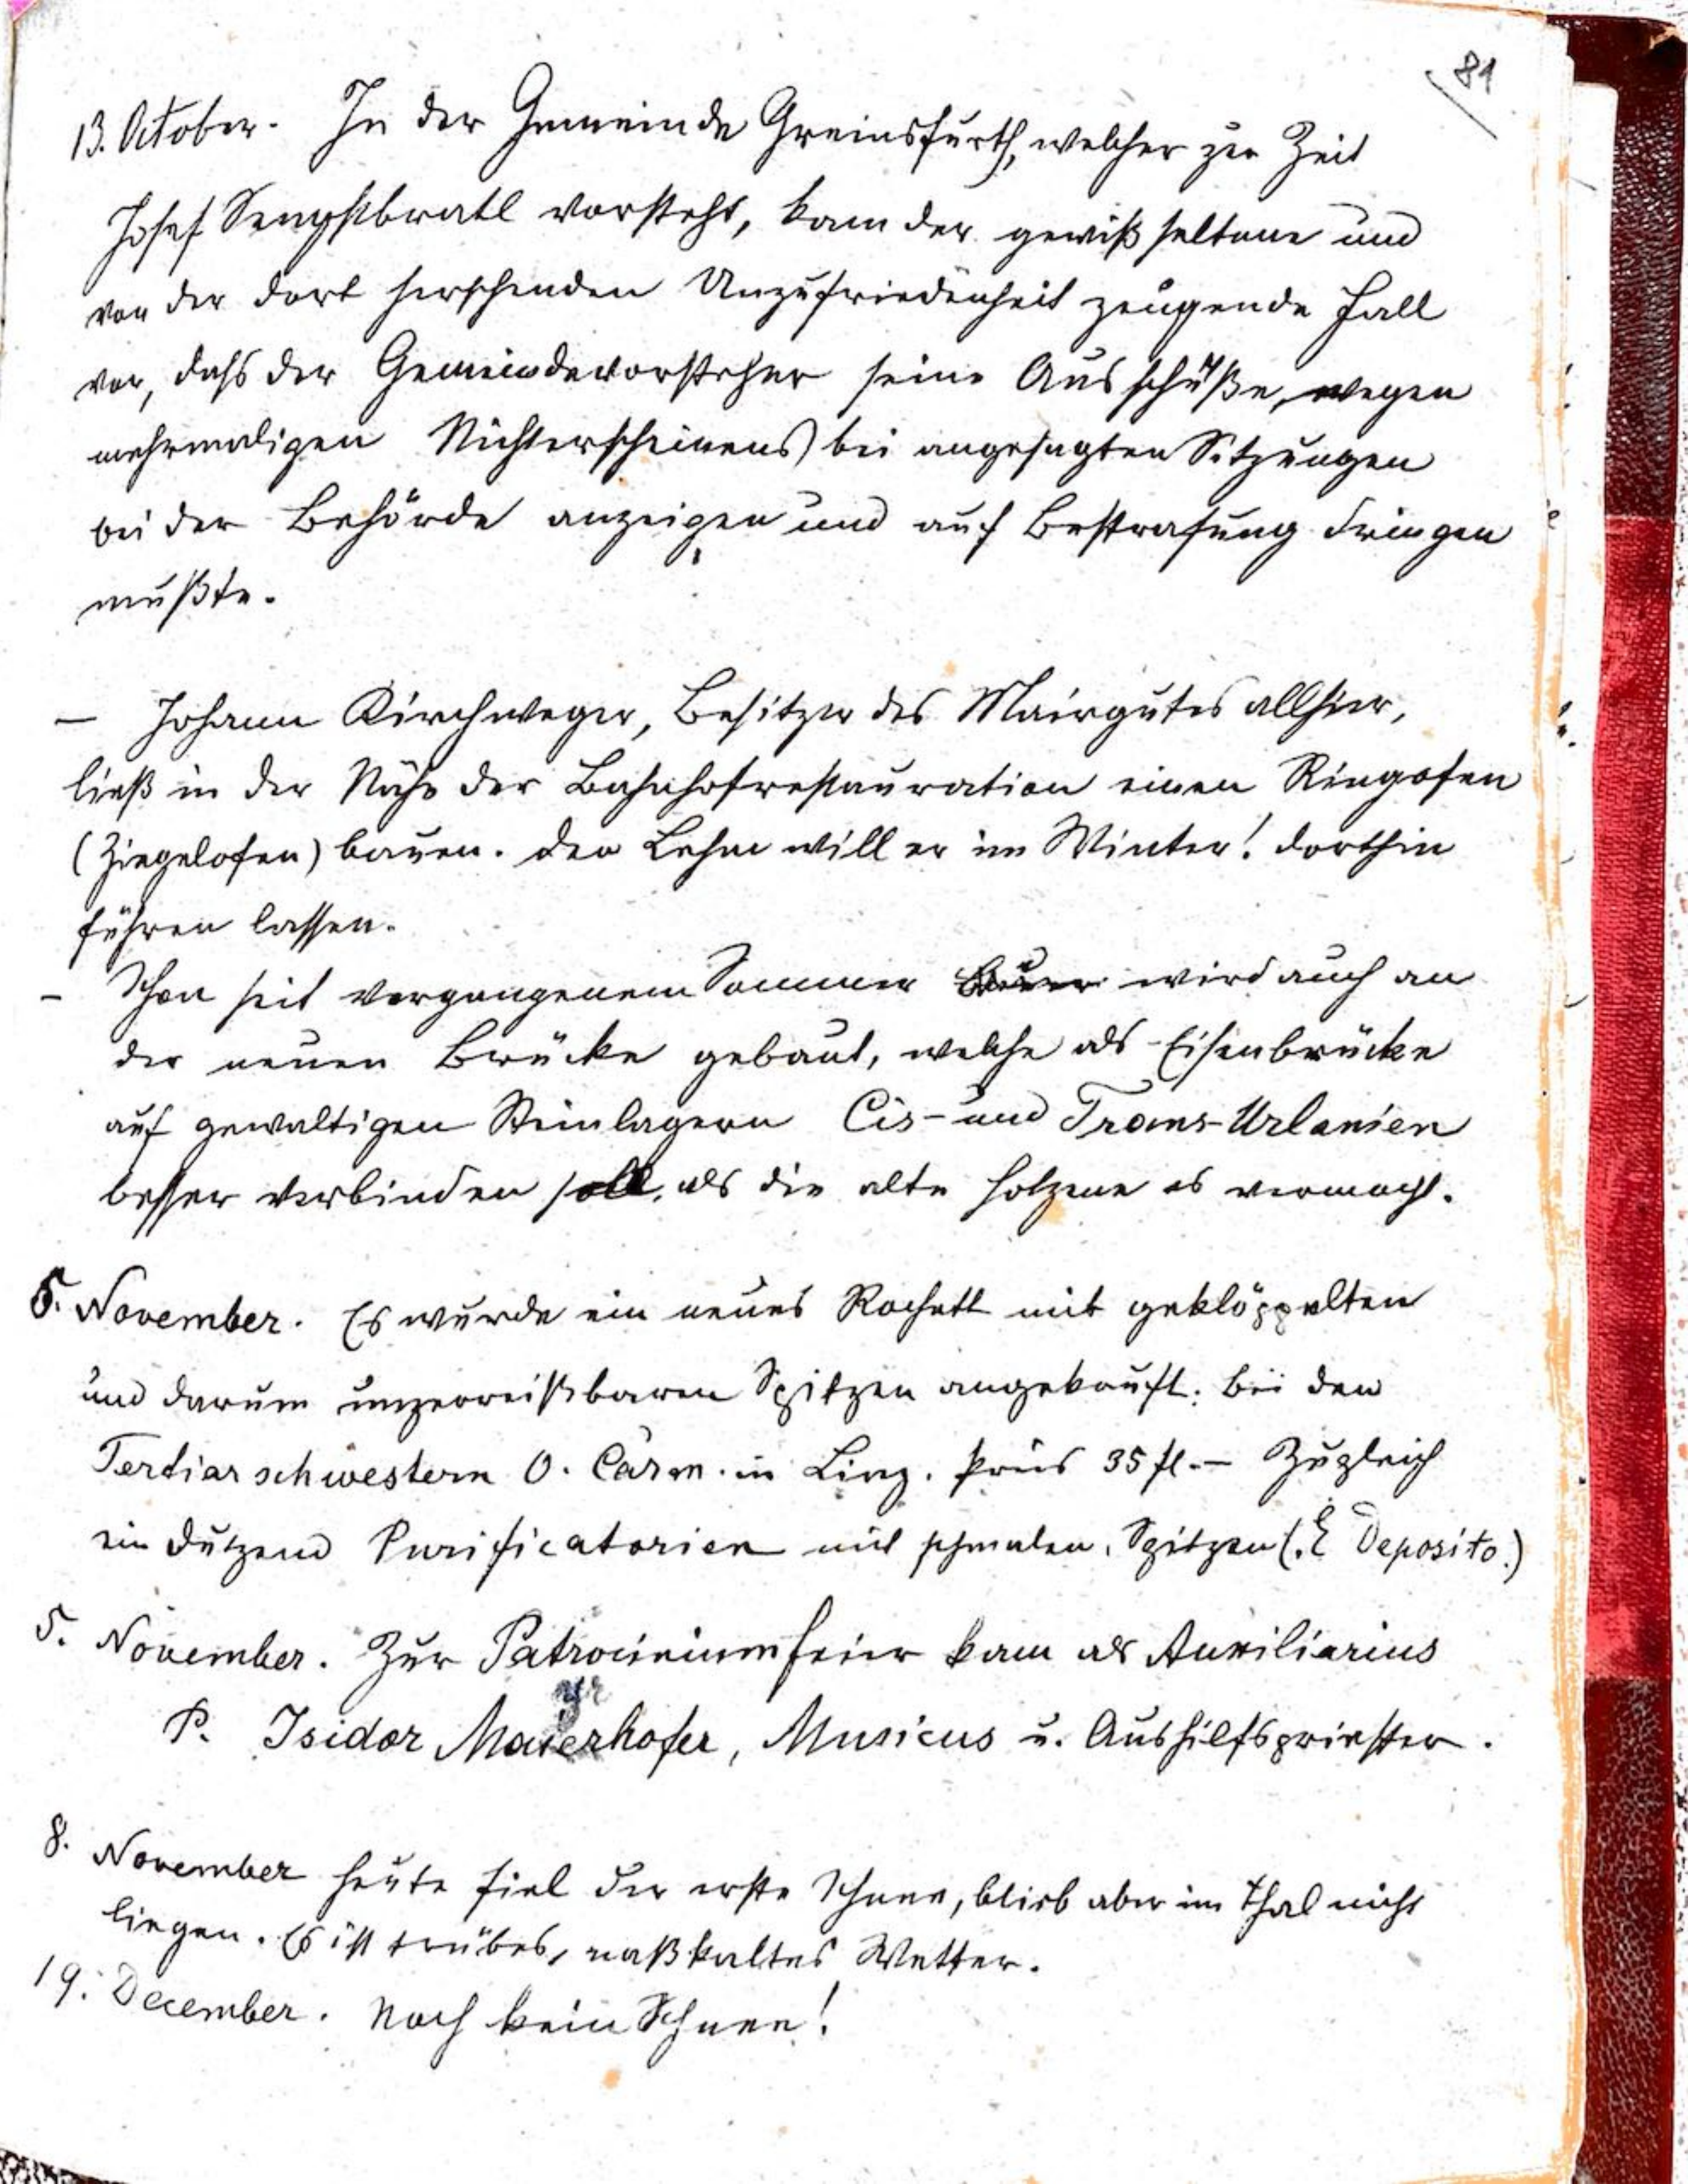 81
13. October. In der Gemeinde Greinsfurth, welcher zur Zeit
Josef Sengstbratl vorsteht, kam der gewiß seltene und
von der dort herschenden Unzufriedenheit zeugende Fall
vor, dass der Gemeindevorsteher seine Ausschüße, wegen
mehrmaligen Nichterscheinens bei angesagten Sitzungen
bei der Behörde anzeigen und auf Bestrafung dringen
mußte.
– Johann Kirchweger, Besitzer des Mairgutes allhier,
ließ in der Nähe der Bahnhofrestauration einen Ringofen
(Ziegelofen) bauen. Den Lehm will er im Winter! dorthin
führen lassen.
– Schon seit vergangenem Sommer wird auch an
der neuen Brücke gebaut, welche als Eisenbrücke
auf gewaltigen Steinlagern Cis- und Trans-Urlanien
besser verbinden soll, als die alte holzene es vermocht.
5. November. Es wurde ein neues Rochett mit geklöppelten
und darum unzerreißbaren Spitzen angekauft. bei den
Tertiarschwestern O. Carm. in Linz. Preis 35 fl. – Zugleich
ein Dutzend Purificatorien mit schmalen Spitzen (. E Deposito.)
5. November. Zur Patrociniumfeier kam als Auxiliarius
P. Isidor Mayerhofer, Musicus u. Aushilfspriester.
8. November heute fiel der erste Schnee, blieb aber im Thal nicht
liegen. Es ist trübes, naßkaltes Wetter.
19. December. Noch kein Schnee!